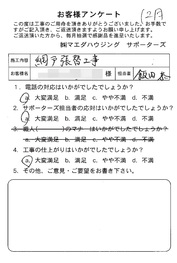 お客様アンケート
12月
この度は工事のご用命を頂きましてありがとうございました。お手数で
すがご記入頂き、ご返送頂きますようお願い申し上げます。
ご返送頂いた方から、毎月抽選で感謝品を進呈いたします。
㈱マエダハウジング サポーターズ
工事内容 網戸張替工事
お客様名 様 担当者 飯田
1. 電話の対応はいかがでしたでしょうか？
a 大変満足 b. 満足 c. やや不満 d. 不満
2. サポーターズ担当者の応対はいかがでしたでしょうか？
a 大変満足 b. 満足 c. やや不満 d. 不満
3. 職人( )のマナーはいかがでしたでしょうか？
a. 大変満足 b. 満足 c. やや不満 d. 不満
4. 工事の仕上がりはいかがでしたでしょうか？
a 大変満足 b. 満足 c. やや不満 d. 不満
5. その他、ご意見・ご要望をお書き下さい。